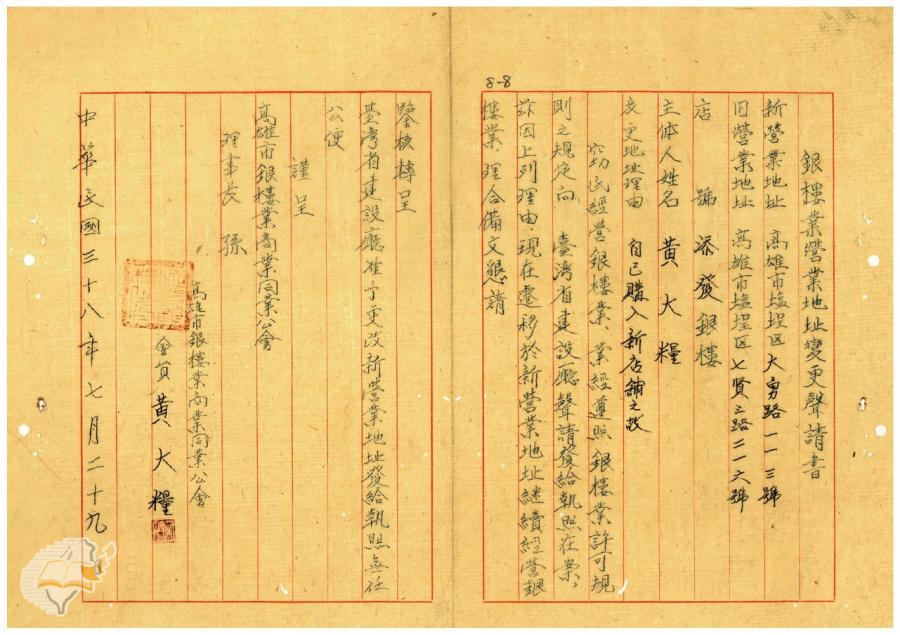 銀樓業營業地址變更聲請書
新營業地址 高雄市塩埕区大勇路一一三號
旧營業地址 高雄市塩埕区七賢三路二一六號
店 號 添發銀樓
主体人姓名 黃大糧
变更地址理由 自己購入新店鋪之故
窃民經營銀樓業、業經遵照銀樓業許可規
則之規定向 臺灣省建設廳聲請發給執照在案,
茲因上列理由.現在遷移於新營業地址継續經營銀
樓業、理合備文懇請
8-8
鑒核轉呈
臺灣省建設廳准予更改新營業地址發給執照無任
公便
謹呈
高雄市銀樓業商業同業公會
理事長 孫
高雄市銀樓業商業同業公會
會員 黃大糧
中華民國三十八年七月二十九